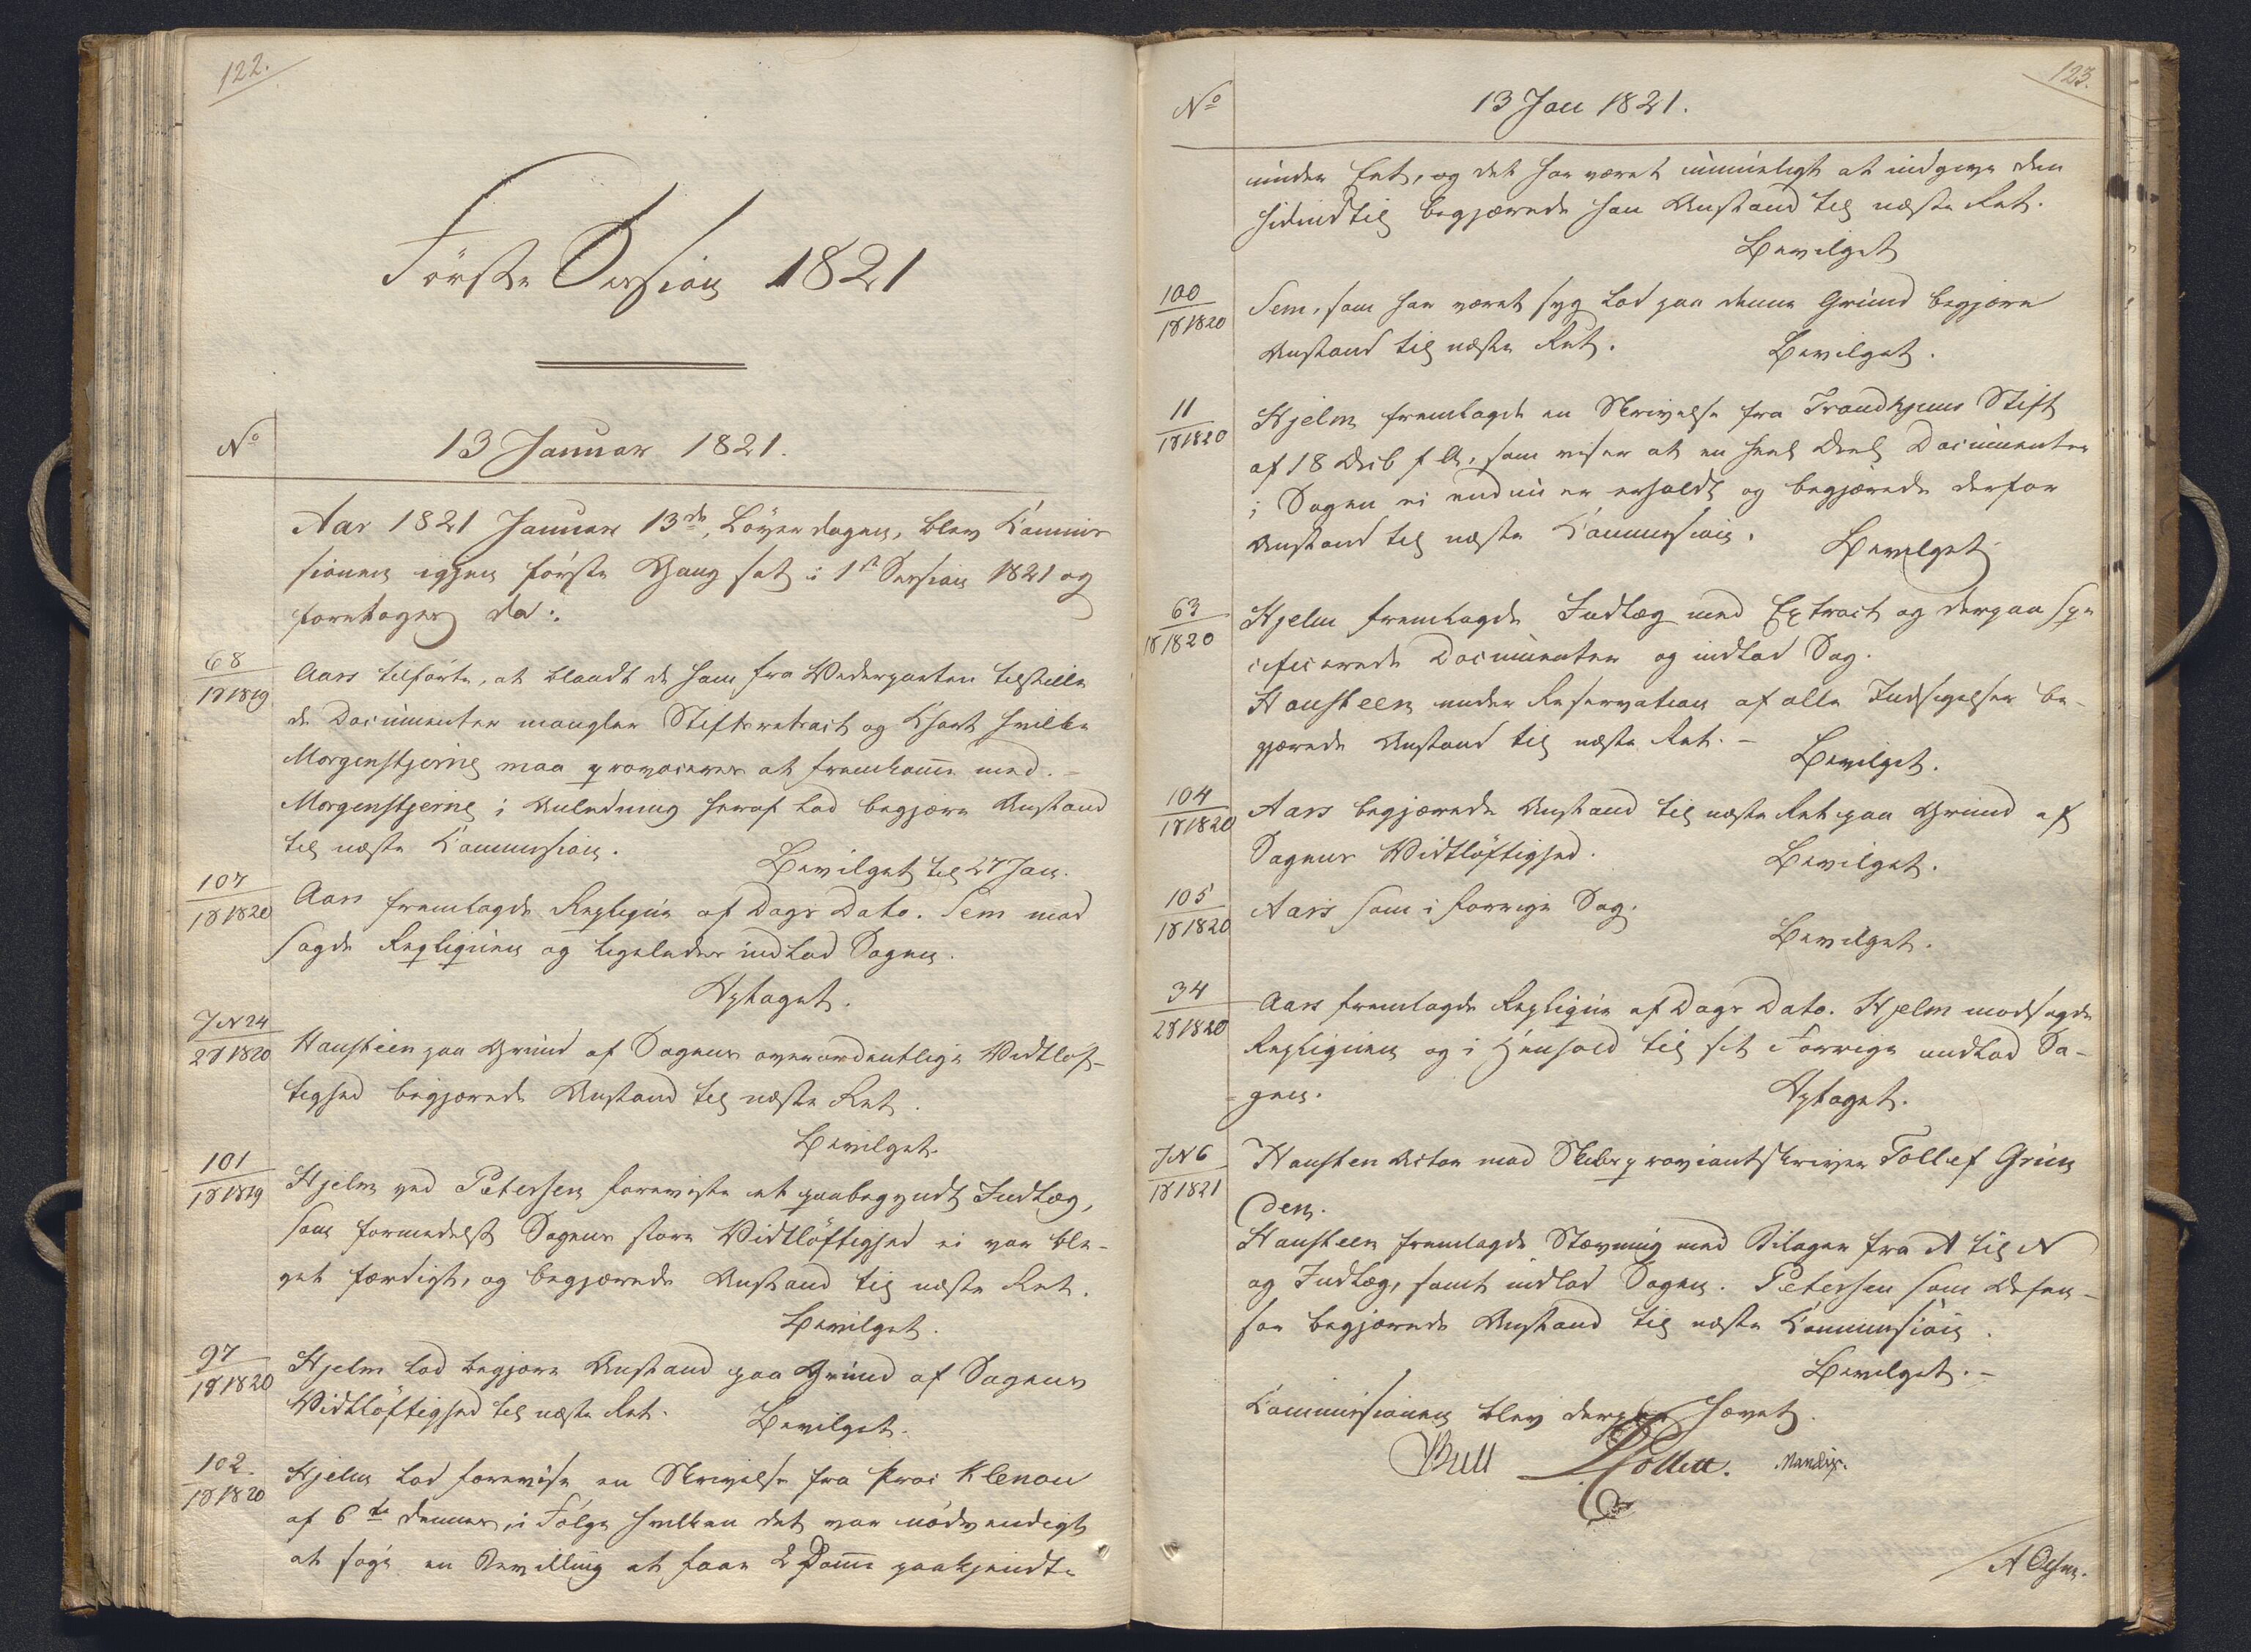 122.
Första Session 1821
No
13 Januar 1821.
Aar 1821 Januar 13de, Löverdagen, blev Commis
sionen igjen första Gang sat i 1st Session 1821 og
foretoges da:
68
1S 1819
Aars tilførte, at blandt de ham fra Vederparten tilstille
de Documenter mangler Stiftsextract og Chart hvilke
Morgenstjerne maa provoceres at fremkomme med.
Morgenstjerne i Anledning heraf lod begjære Anstand
til næste Commission.
Bevilget til 27 Jan.
107
1S 1820
Aars fremlagde Replique af Dags Dato. Sem mod
sagde Repliquen og ligeledes indlod Sagen.
Optaget.
JN 24
2S 1820
Hansteen paa Grund af Sagens overordentlige Vidtløf-
tighed begjærede Anstand til næste Ret.
Bevilget.
101
1S 1819
Hjelm ved Petersen foreviste et paabegyndt Indlæg,
som formedelst Sagens store Vidtløftighed ei var ble-
vet færdigt, og begjærede Anstand til næste Ret.
Bevilget.
97
1S 1820
Hjelm lod begjære Anstand paa Grund af Sagens
Vidtløftighed til næste Ret.
Bevilget.
102
1S 1820
Hjelm lod forevise en Skrivelse fra Proc Klenou
af 6te dennes, i Følge hvilken det var nødvendigt
at søge en Bevilling at faae 2 Domme paakjendte
123.
No
13 Jan 1821.
under Eet, og det har været umueligt at indgive den
hidindtil begjærede han Anstand til næste Ret.
Bevilget
100
1S 1820
Sem, som har været syg lod paa denne Grund begjære
Anstand til næste Ret.
Bevilget.
11
1S 1820
Hjelm fremlagde en Skrivelse fra Trondhjems Stift
af 18 Decb f A, som viser at en heel Deel Documenter
i Sagen ei endnu er erholdt og begjærede derfor
Anstand til næste Commission.
Bevilget
63
1S 1820
Hjelm fremlagde Indlæg med Extract og derpaa spe
cificerede Documenter og indlod Sag.
Hansteen under Reservation af alle Indsigelser be-
gjærede Anstand til næste Ret. -
Bevilget.
104
1S 1820
Aars begjærede Anstand til næste Ret paa Grund af
Sagens Vidtløftighed.
Bevilget.
105
1S 1820
Aars som i forrige Sag.
Bevilget.
34
2S 1820
Aars fremlagde Replique af Dags Dato. Hjelm modsagde
Repliquen og i Henhold til sit Forrige indlod Sa-
gen.
Optaget.
JN 6
1S 1821
Hansteen Actor mod Skibsproviantskriver Tollef Grun
den.
Hansteen fremlagde Stævning med Bilager fra A til N
og Indlæg, samt indlod Sagen. Petersen som Defen-
sor begjærede Anstand til næste Commission.
Bevilget. -
Commissionen blev derpaa hævet.
Bull Collett. Mandix.
A Olsen.